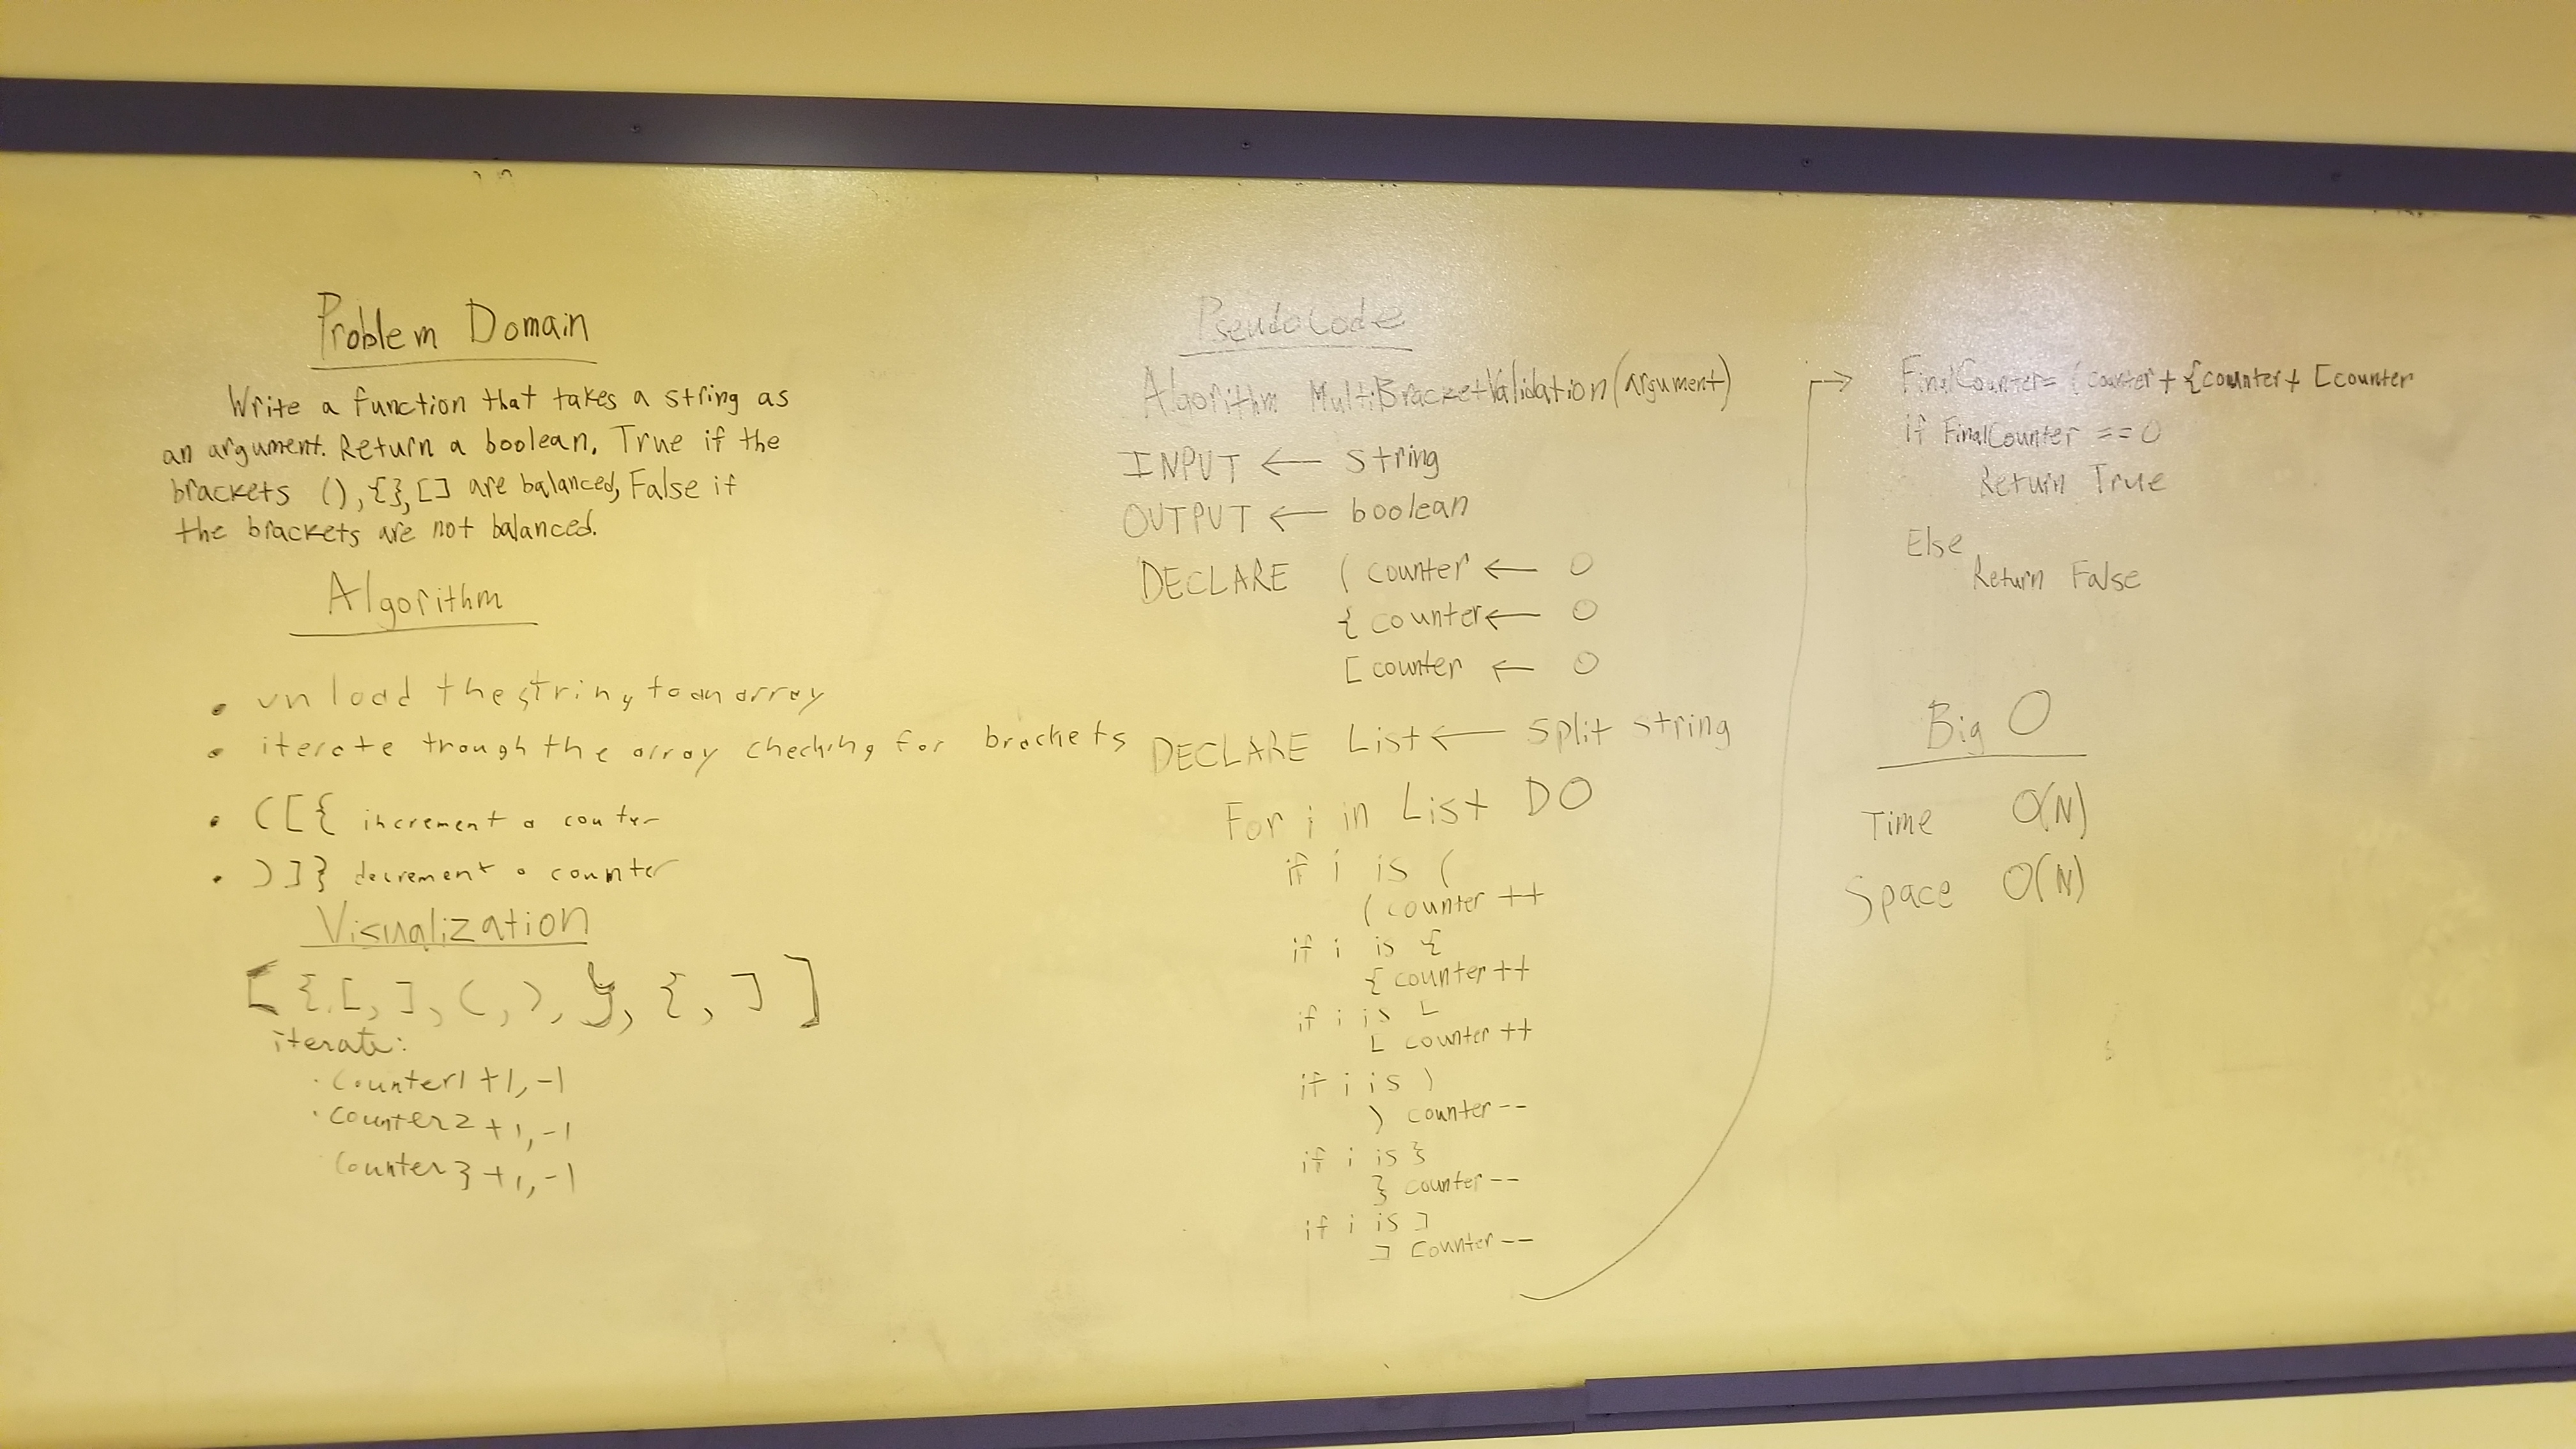 Problem Domain
Write a function that takes a string as
an argument. Return a boolean, True if the
brackets (), {}, [] are balanced, False if
the brackets are not balanced.
Algorithm
• unload the string to an array
• iterate trough the array checking for brackets
• ( [ { increment a counter
• ) ] } decrement a counter
Visualization
[ {, [, ], (, ), }, {, ] ]
iterate:
· counter1 +1, -1
· counter2 +1, -1
counter3 +1, -1
Pseudocode
Algorithm MultiBracketValidation(argument)
INPUT ← string
OUTPUT ← boolean
DECLARE ( counter ← 0
{ counter ← 0
[ counter ← 0
DECLARE List ← split string
For i in List DO
if i is (
( counter ++
if i is {
{ counter ++
if i is [
[ counter ++
if i is )
) counter --
if i is }
} counter --
if i is ]
] counter --
→ FinalCounter= (counter + {counter + [counter
if FinalCounter == 0
Return True
Else
Return False
Big O
Time O(N)
Space O(N)